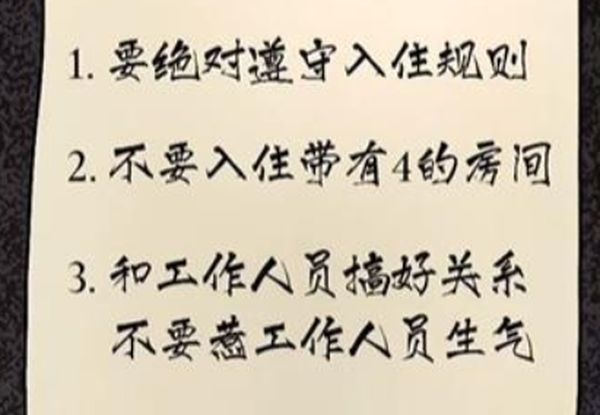 1. 要绝对遵守入住规则
2. 不要入住带有4的房间
3. 和工作人员搞好关系
不要惹工作人员生气